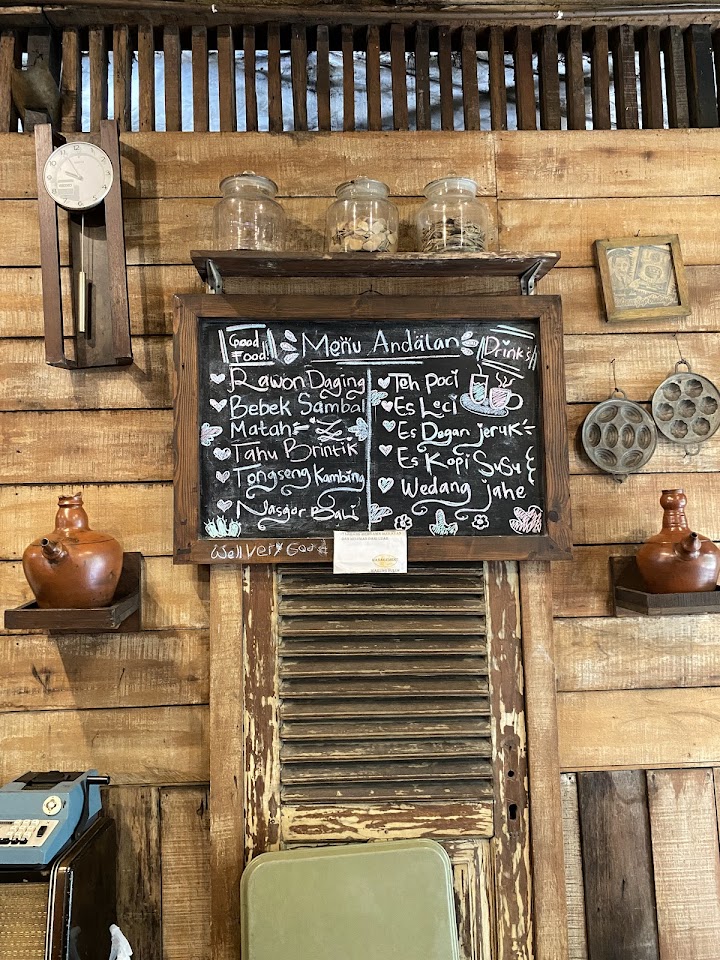 Good
Food!
Menu Andalan
Drink's
Rawon Daging
Bebek Sambal
Matah
Tahu Brintik
Tongseng Kambing
Nasgor Bali
Teh Poci
Es Leci
Es Degan jeruk
Es Kopi Susu
Wedang jahe
Well Very Good